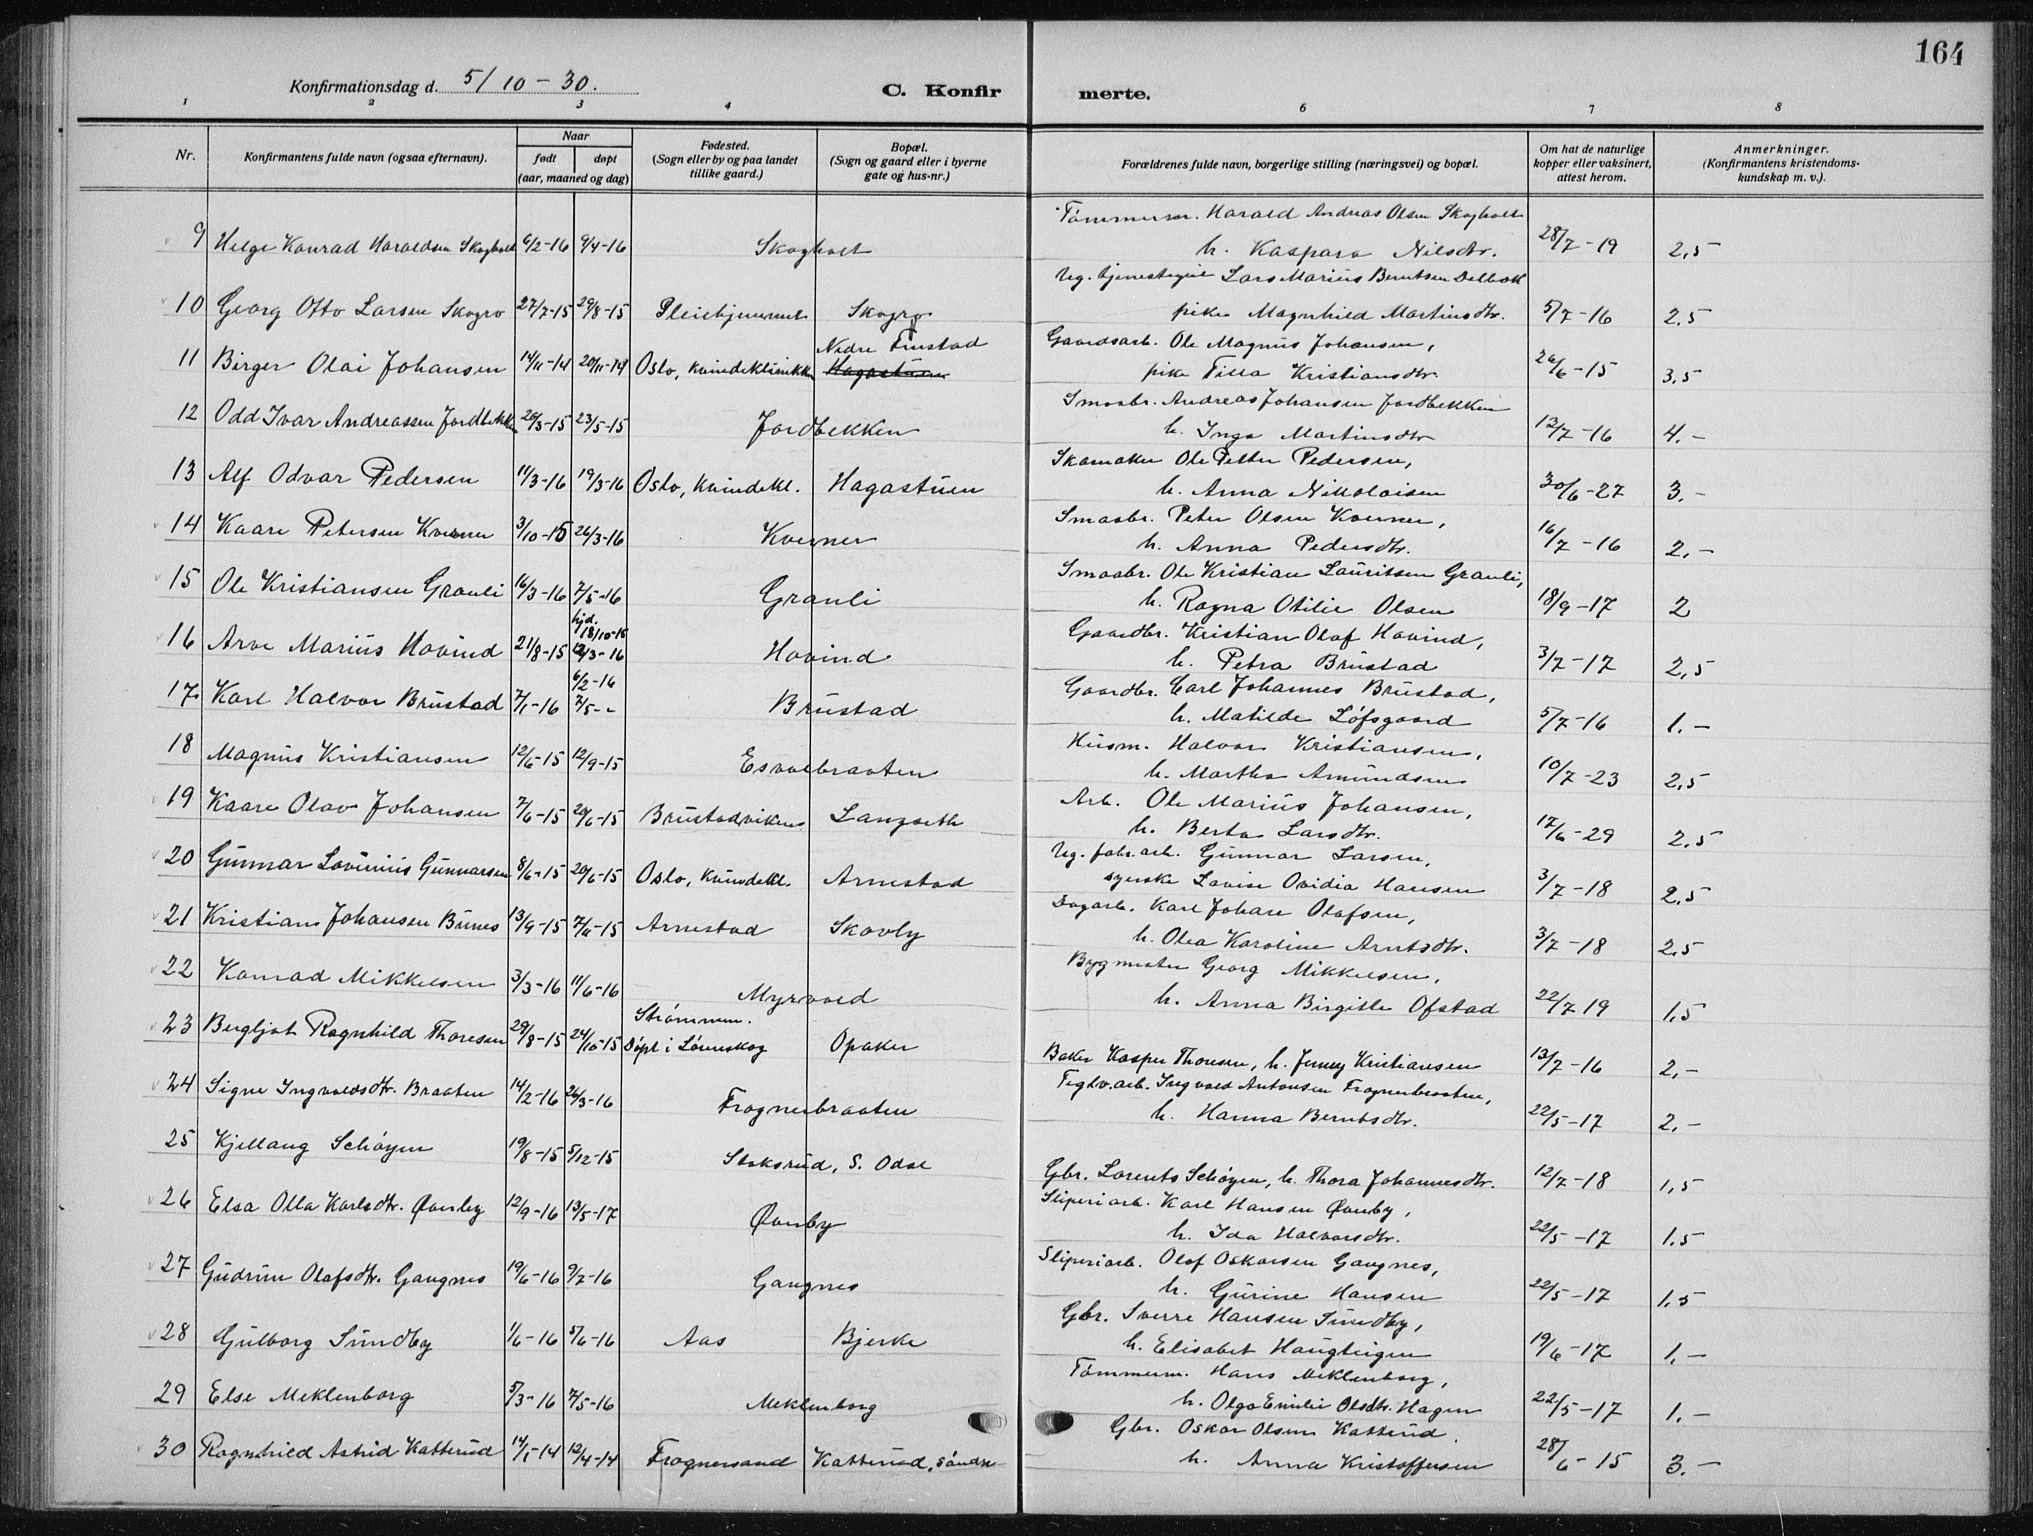 164
Konfirmationsdag d. 5/10-30. C. Konfir merte.
1 2 3 4 6 7 8
Nr. Konfirmantens fulde navn (ogsaa efternavn). Naar født døpt (aar, maaned og dag) Fødested. (Sogn eller by og paa landet tillike gaard.) Bopæl. (Sogn og gaard eller i byerne gate og hus-nr.) Forældrenes fulde navn, borgerlige stilling (næringsvei) og bopæl. Om hat de naturlige kopper eller vaksinert, attest herom. Anmerkninger. (Konfirmantens kristendoms-kundskap m. v.).
Tømmerm. Harald Andreas Olsen Skogholt
9 Helge Konrad Haraldsen Skogholt 6/2-16 9/4-16 Skogholt h. Kaspara Nilsdtr. 28/7-19 2,5
Ug. tjenestegut Lars Marius Berntsen
10 Georg Otto Larsen Skogro 27/7-15 29/8-15 Pleiehjemmet Skogro pike Magnhild Martinsdtr. 5/7-16 2,5
Nedre Finstad Gaardsarb. Ole Magnus Johansen,
11 Birger Olai Johansen 14/11-14 20/11-14 Oslo, kvindeklinikken Hagastuen pike Tilla Kristiansdtr. 26/6-15 3,5
Smaabr. Andreas Johansen Jordbekken
12 Odd Ivar Andreassen Jordbekken 25/3-15 23/5-15 Jordbekken h. Inga Martinsdtr 12/7-16 4.-
Skomaker Ole Petter Pedersen,
13 Alf Odvar Pedersen 11/3-16 19/3-16 Oslo, kvindekl. Hagastuen h. Anna Nikolaisen 30/6-27 3.-
Smaabr. Peter Olsen Kverner,
14 Kaare Petersen Kverner 3/10-15 26/3-16 Kverner h. Anna Pedersdtr. 16/7-16 2.-
Smaabr. Ole Kristian Lauritsen Granli,
15 Ole Kristiansen Granli 16/3-16 7/5-16 Granli h. Ragna Otilie Olsen 18/9-17 2
hjd. 18/10-15 Gaardbr. Kristian Olaf Hovind,
16 Arve Marius Hovind 21/8-15 12/3-16 Hovind h. Petra Brustad 3/7-17 2,5
6/2-16 Gaardbr. Carl Johannes Brustad,
17 Karl Halvor Brustad 7/1-16 7/5-- Brustad h. Matilde Løfsgaard 5/7-16 1.-
Husm. Halvor Kristiansen,
18 Magnus Kristiansen 12/6-15 12/9-15 Esvalbraaten h. Martha Amundsen 10/7-23 2,5
Arb. Ole Marius Johansen,
19 Kaare Olav Johansen 7/6-15 20/6-15 Brustadviken Langseth h. Berta Larsdtr. 17/6-29 2,5
Ug. fabr.arb. Gunnar Larsen,
20 Gunnar Lovinius Gunnarsen 8/6-15 20/6-15 Oslo, kvindekl. Arnestad syerske Lovise Ovidia Hansen 3/7-18 2,5
Dagarb. Karl Johan Olafsen,
21 Kristian Johansen Bunes 13/9-15 7/11-15 Arnestad Skovly h. Olea Karoline Arntsdtr. 3/7-18 2,5
Bygmester Georg Mikkelsen,
22 Konrad Mikkelsen 3/3-16 11/6-16 Myrvold h. Anna Birgitte Ofstad 22/7 19 1,5
Strømmen.
23 Bergljot Ragnhild Thoresen 29/8-15 24/10-15 Døpt i Lørenskog Opaker Baker Kasper Thoresen, h. Jenny Kristiansen 13/7-16 2,-
Teglv.arb. Ingvald Antonsen Frognerbraaten,
24 Signe Ingvaldsdtr. Braaten 14/2-16 26/3-16 Frognerbraaten h. Hanna Berntsdtr. 22/5-17 2.-
25 Kjellaug Schøyen 19/8-15 5/12-15 Stoksrud, S. Odal Gbr. Lorents Schøyen, h. Thora Johannesdtr. 12/7-18 1,5
Sliperiarb. Karl Hansen Øvreby,
26 Elsa Olla Karlsdtr. Øvreby 12/9-16 13/5-17 Øvreby h. Ida Halvorsdtr. 22/5-17 1.5
Sliperiarb. Olaf Oskarsen Gangnes,
27 Gudrun Olafsdtr. Gangnes 19/6-16 9/7-16 Gangnes h. Gurine Hansen 22/5-17 1,5
Gbr. Sverre Hansen Sundby,
28 Gulborg Sundby 1/6-16 5/6-16 Aas Bjerke h. Elisabet Haugteigen 19/6-17 1.-
Tømmerm. Hans Meklenborg,
29 Else Meklenborg 5/3-16 7/5-16 Meklenborg h. Olga Emilie Olsdtr. Hagen 22/5-17 1.-
Gbr. Oskar Olsen Katterud.
30 Ragnhild Astrid Katterud 14/1-14 12/4-14 Frognersand Katterud, søndre h. Anna Kristoffersen 28/6-15 3.-